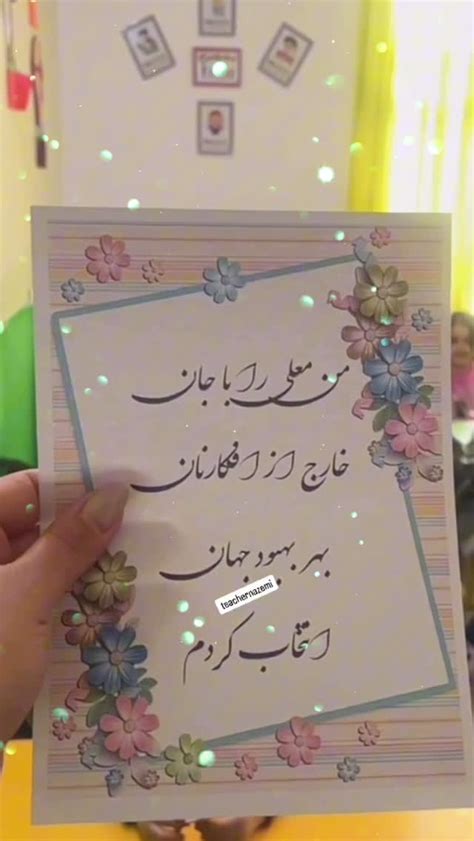 من معلمی را با جان
خارج از افکار نان
بهر بهبود جهان
teachernazemi
انتخاب کردم